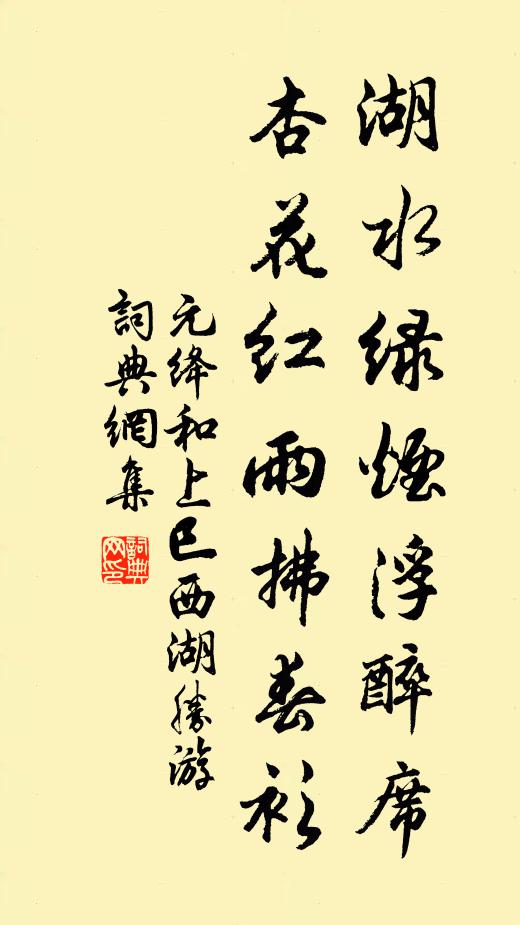 湖水绿煙浮醉席
杏花红雨拂春衫
元绛和上巳西湖胜游
詞典網集
詞典
网印